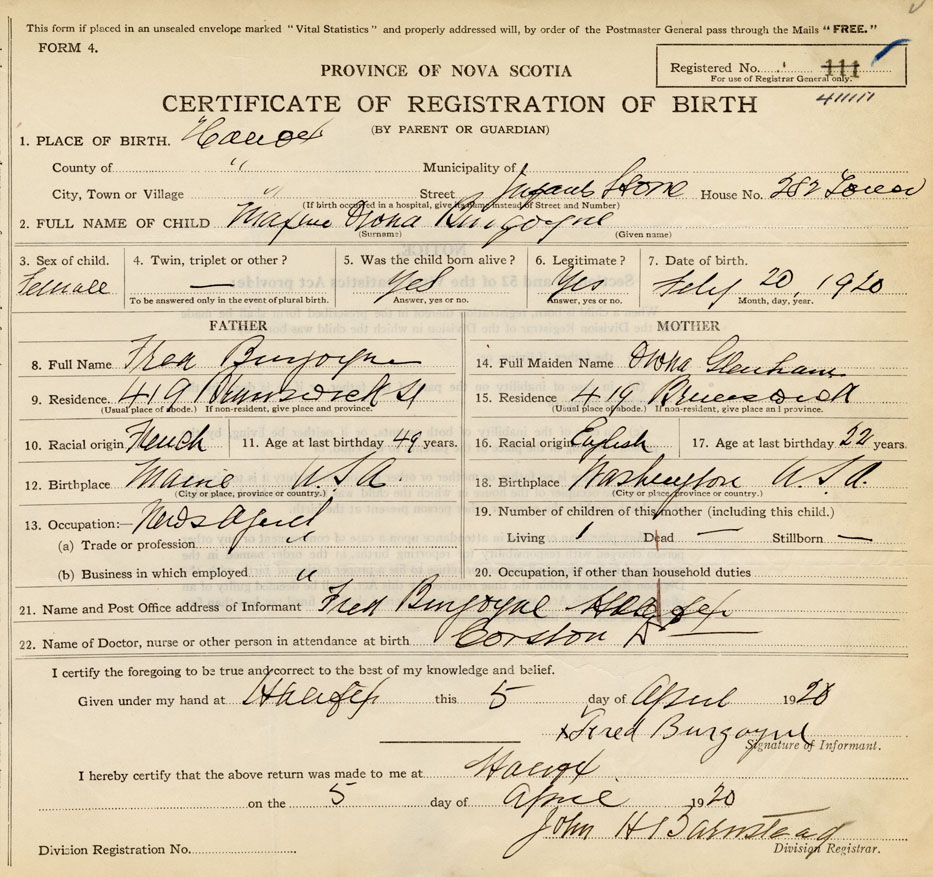 This form if placed in an unsealed envelope marked "Vital Statistics" and properly addressed will, by order of the Postmaster General pass through the Mails "FREE."
FORM 4.
Registered No. 111
For use of Registrar General only.
PROVINCE OF NOVA SCOTIA
CERTIFICATE OF REGISTRATION OF BIRTH
(BY PARENT OR GUARDIAN)
1. PLACE OF BIRTH. Halifax
County of " Municipality of
City, Town or Village " Street House No. 282
(If birth occurred in a hospital, give its name instead of Street and Number)
2. FULL NAME OF CHILD Burgoyne
(Surname) (Given name)
3. Sex of child. 4. Twin, triplet or other? 5. Was the child born alive? 6. Legitimate? 7. Date of birth.
Female — Yes Yes Feby 20, 1920
To be answered only in the event of plural birth. Answer, yes or no. Answer, yes or no. Month, day, year.
FATHER
8. Full Name Fred Burgoyne
9. Residence. 419 Brunswick St
(Usual place of abode.) If non-resident, give place and province.
10. Racial origin French 11. Age at last birthday 49 years.
12. Birthplace Maine U.S.A.
(City or place, province or country.)
13. Occupation:— News Agent
(a) Trade or profession "
(b) Business in which employed "
MOTHER
14. Full Maiden Name Glenham
15. Residence 419 Brunswick
(Usual place of abode.) If non-resident, give place and province.
16. Racial origin English 17. Age at last birthday 22 years.
18. Birthplace Washington U.S.A.
(City or place, province or country.)
19. Number of children of this mother (including this child.)
Living 1 Dead — Stillborn —
20. Occupation, if other than household duties
21. Name and Post Office address of Informant Fred Burgoyne Halifax
22. Name of Doctor, nurse or other person in attendance at birth Corston D
I certify the foregoing to be true and correct to the best of my knowledge and belief.
Given under my hand at Halifax this 5 day of April 1920
x Fred Burgoyne
Signature of Informant.
I hereby certify that the above return was made to me at Halifax
on the 5 day of April 1920
John H Barnstead
Division Registration No. Division Registrar.